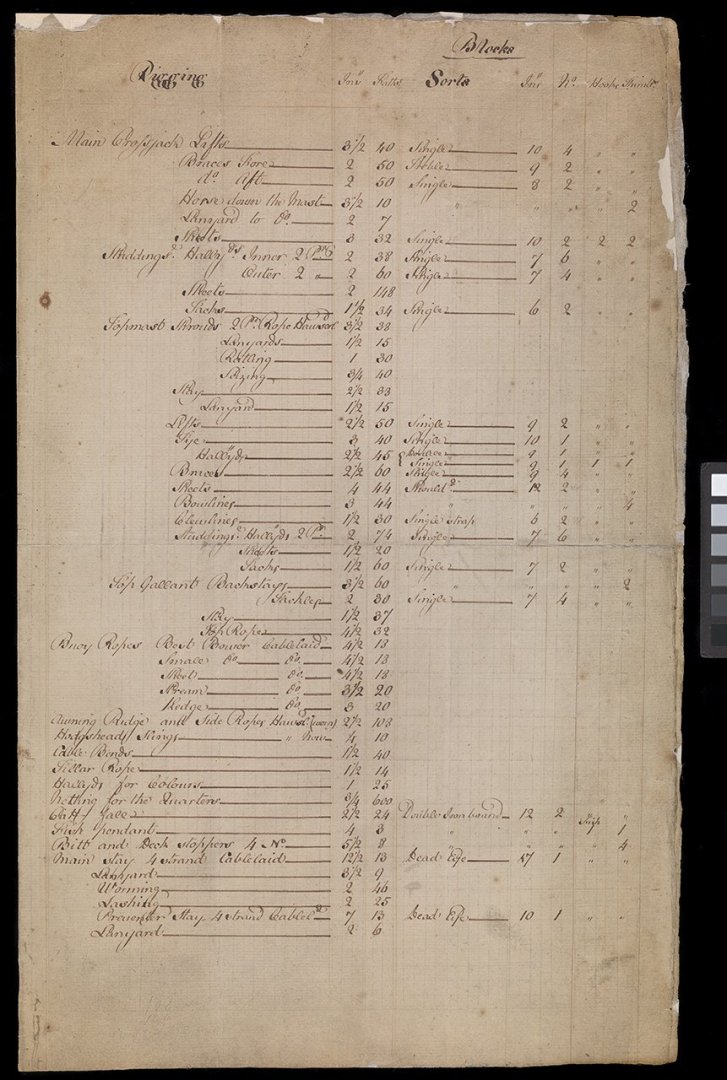 Blocks
Rigging Ins Faths Sorts Ins No Hooks Thimbs
Main Crossjack Lifts 3 1/2 40 Single 10 4 " "
Braces Fore 2 50 9 2 " "
do Aft 2 50 Single 8 2 " "
Horse down the Mast 3 1/2 10 " " " " 2
Lanyard to Do. 2 7
Sheets 3 32 Single 10 2 2 2
Studdings.l Hally.ds Inner 2 Prs 2 38 Single 7 6 " "
Outer 2 " 2 60 Single 7 4 " "
Sheets 2 148
Tacks 1 1/2 34 Single 6 2 " "
Topmast Shrouds 2 Pr Rope Hawserl.d 3 1/2 38
Lanyards 1 1/2 15
Ratling 1 30
Sizing 3/4 40
Stay 2 1/2 33
Lanyard 1 1/2 15
Lifts 2 1/2 50 Single 9 2 " "
Tye 3 40 Single 10 1 " "
Hallyds 2 1/2 45 { Double 9 1 " "
Single 9 1 1 1
Braces 2 1/2 60 Single 9 4 " "
Sheets 4 44 Should.r 12 2 " "
Bowlines 3 44 " " " " 4
Clewlines 1 1/2 30 Single Strap 6 2 " "
Studdings.l Hallyds 2 Pr 2 74 Single 7 6 " "
Sheets 1 1/2 20
Tacks 1 1/2 60 Single 7 2 " "
Top Gallant Backstays 3 1/2 60 " " " " 2
Tackles 2 30 Single 7 4 " "
Stay 1 1/2 37
Top Rope 4 1/2 32
Buoy Ropes Best Bower Cablelaid 4 1/2 18
Small Do. Do. 4 1/2 18
Sheet Do. 4 1/2 18
Stream Do. 3 1/2 20
Kedge Do. 3 20
Awning Ridge and Side Ropes Hawsl (worn) 2 1/2 108
Hodgsheads Slings " New 4 10
Cable Bends 1 1/2 40
Tillar Rope 1 1/2 14
Hallyds for Colours 1 25
Netting for the Quarters 3/4 600
Catt falls 2 1/2 24 Double Ironbound 12 2 " "
Fish pendant 4 3 " " " 1
Bitt and Deck stoppers 4 No. 5 1/2 8 " " " 4
Main Stay 4 strand Cablelaid 12 1/2 13 Dead Eye 17 1 " "
Lanyard 3 1/2 9
Worming 2 46
Lashing 2 25
Preventer Stay 4 strand Cablel.d 7 13 Dead Eye 10 1 " "
Lanyard 2 6